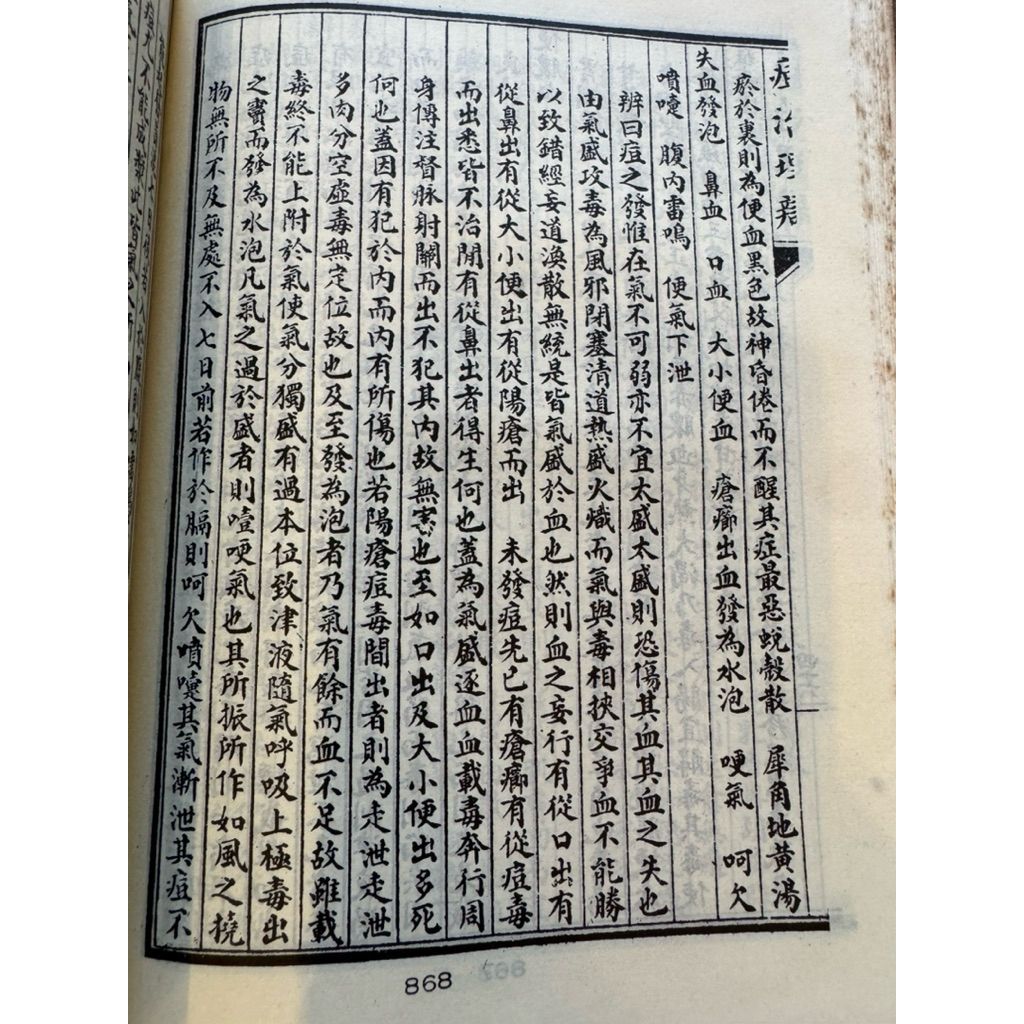 痘治理辨
瘀於裏則為便血黑色故神昏倦而不醒其症最惡蛻殼散 犀角地黃湯
失血發泡 鼻血 口血 大小便血 瘡癤出血發為水泡 哽氣 呵欠
噴嚏 腹內雷鳴 便氣下泄
辨曰痘之發惟在氣不可弱亦不宜太盛太盛則恐傷其血其血之失也
由氣盛攻毒為風邪閉塞清道熱盛火熾而氣與毒相挾交爭血不能勝
以致錯經妄道渙散無統是皆氣盛於血也然則血之妄行有從口出有
從鼻出有從大小便出有從陽瘡而出 未發痘先已有瘡癤有從痘毒
而出悉皆不治間有從鼻出者得生何也蓋為氣盛逐血血載毒奔行周
身傳注督脉射關而出不犯其內故無害也至如口出及大小便出多死
何也蓋因有犯於內而內有所傷也若陽瘡痘毒間出者則為走泄走泄
多肉分空虛毒無定位故也及至發為泡者乃氣有餘而血不足故雖載
毒終不能上附於氣使氣分獨盛有過本位致津液隨氣呼吸上極毒出
之竇而發為水泡凡氣之過於盛者則噎哽氣也其所振所作如風之撓
物無所不及無處不入七日前若作於膈則呵欠噴嚏其氣漸泄其痘不
868